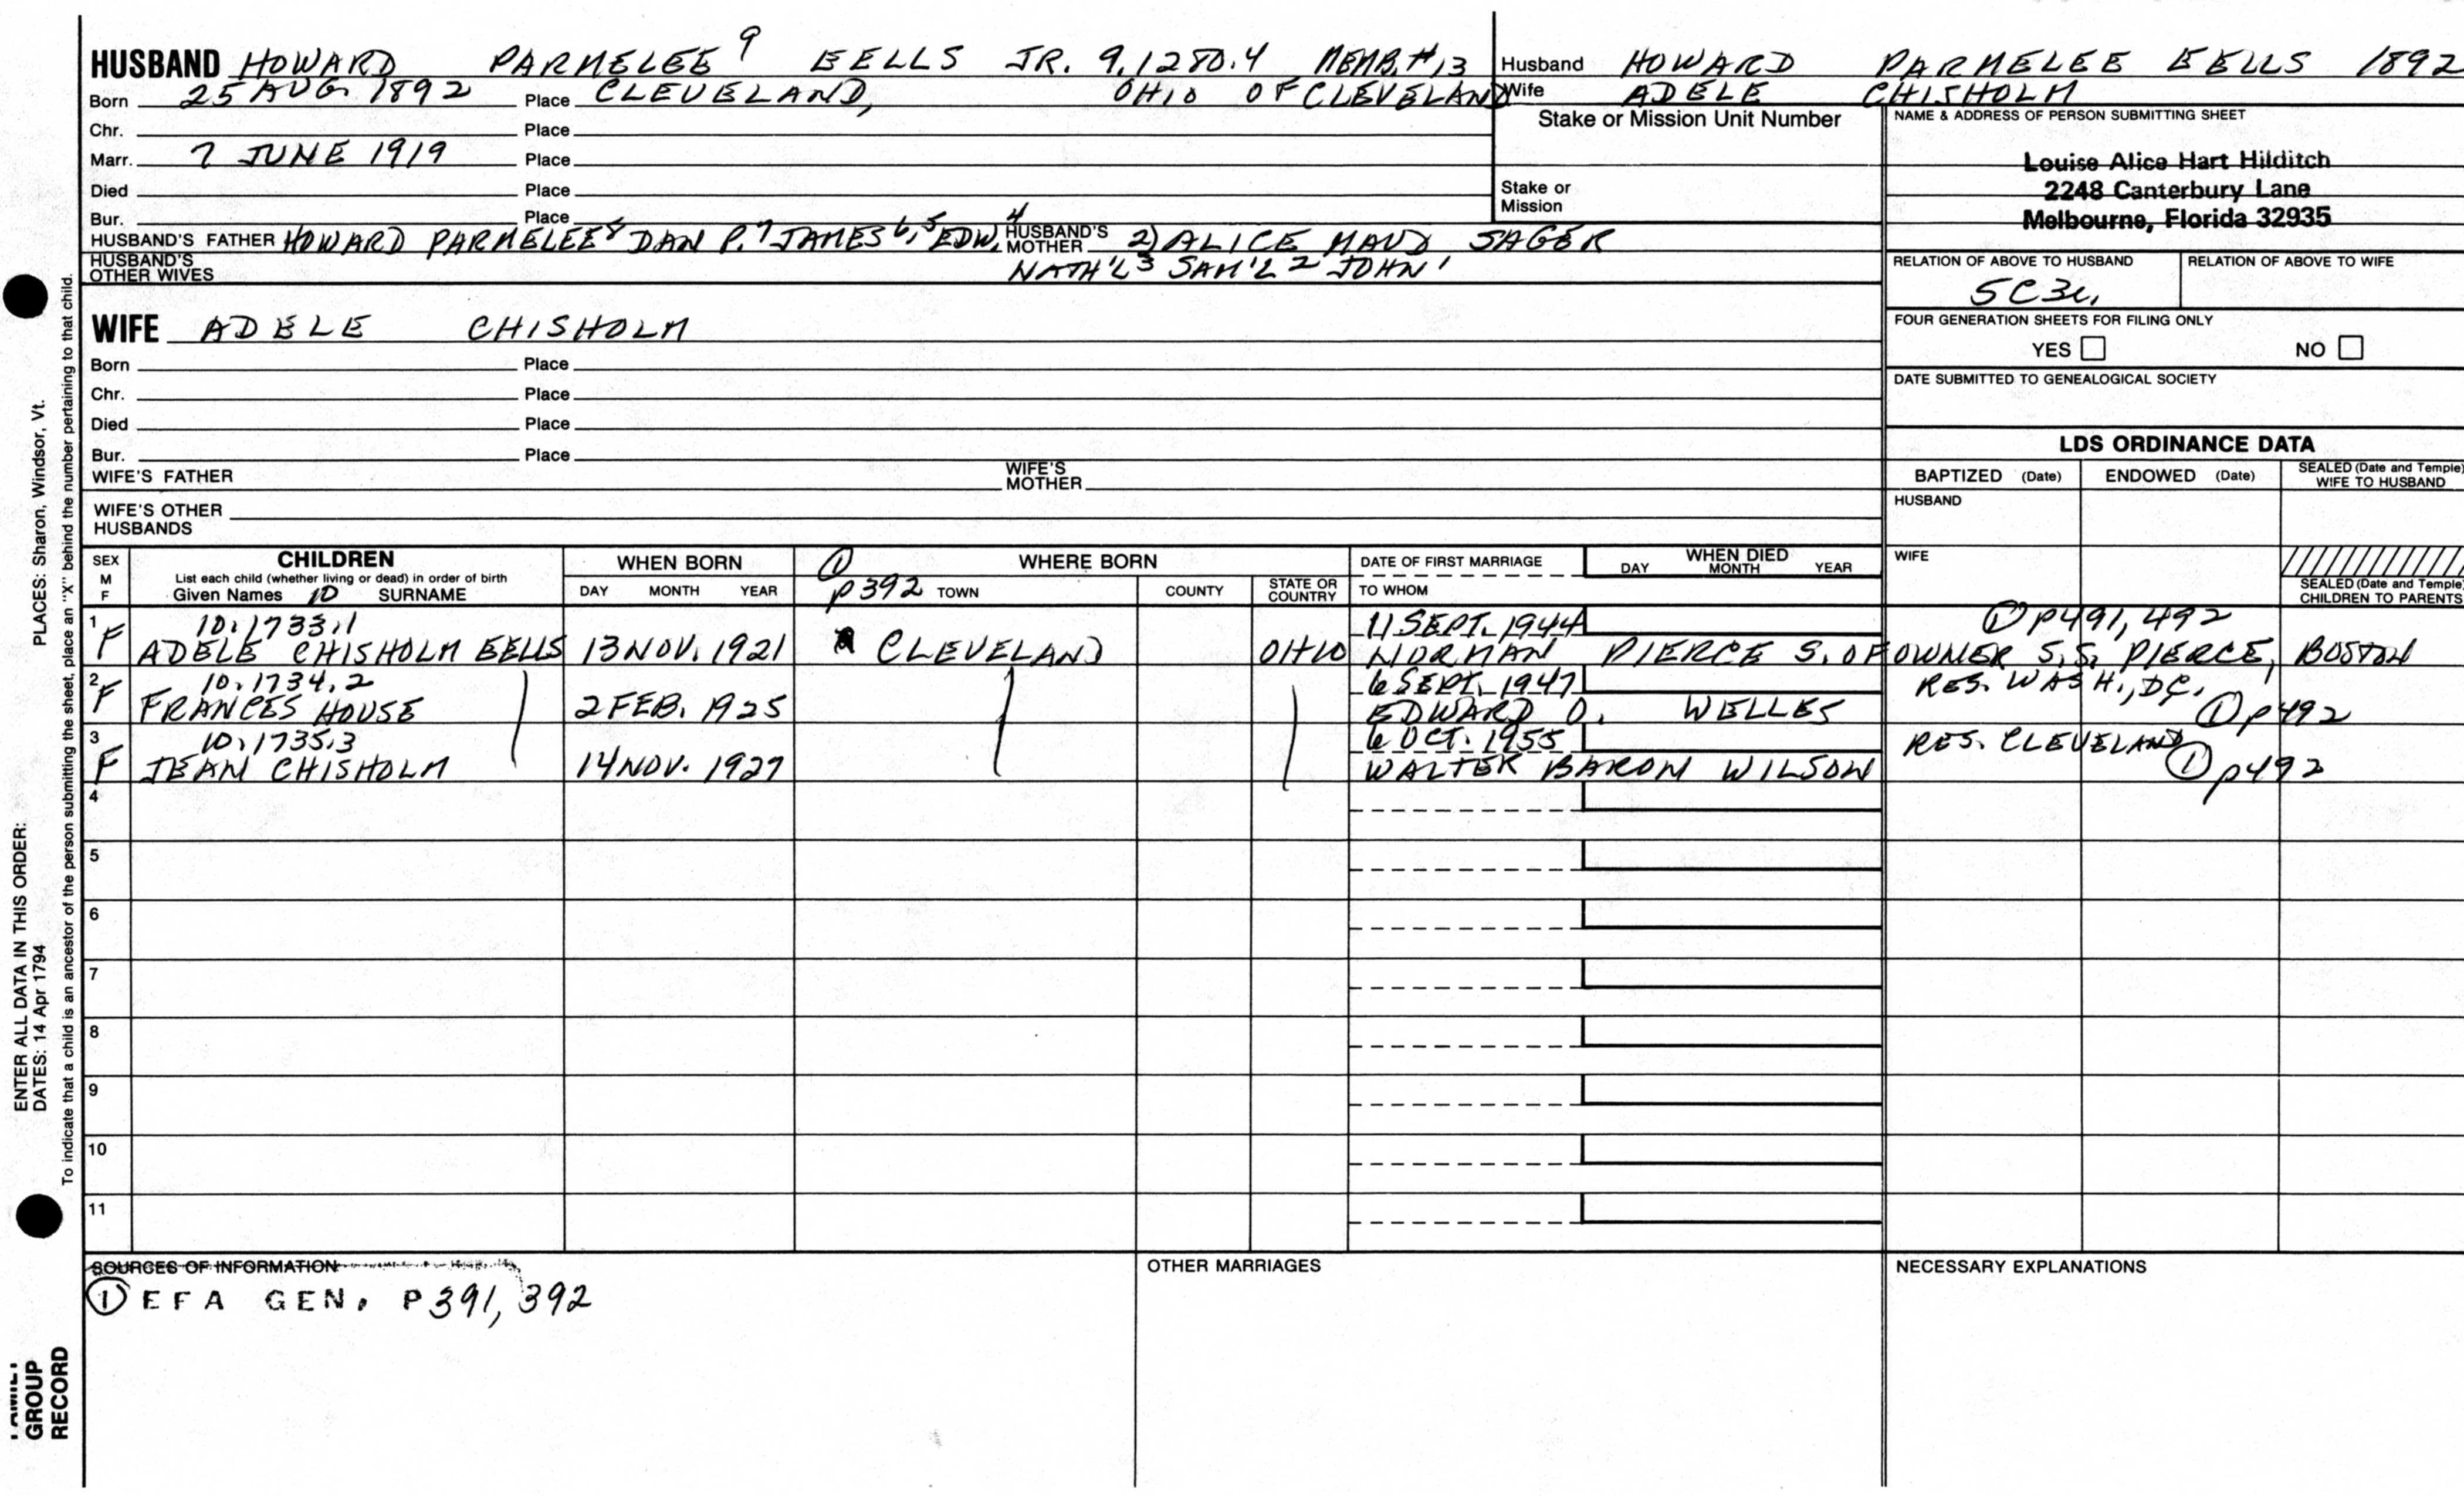 HUSBAND HOWARD PARMELEE 9 EELLS JR. 9.1280.4 MEMB.#13
Born 25 AUG. 1892 Place CLEVELAND, OHIO OF CLEVELAND
Chr. Place
Marr. 7 JUNE 1919 Place
Died Place
Bur. Place
HUSBAND'S FATHER HOWARD PARMELEE8 DAN P.7 JAMES6,5 EDW.4 HUSBAND'S MOTHER 2) ALICE MAUD SAGER
HUSBAND'S OTHER WIVES NATH'L3 SAM'L2 JOHN1
Husband HOWARD PARMELEE EELLS 1892
Wife ADELE CHISHOLM
Stake or Mission Unit Number
Stake or Mission
NAME & ADDRESS OF PERSON SUBMITTING SHEET
Louise Alice Hart Hilditch
2248 Canterbury Lane
Melbourne, Florida 32935
RELATION OF ABOVE TO HUSBAND RELATION OF ABOVE TO WIFE
5C3r.
FOUR GENERATION SHEETS FOR FILING ONLY
YES NO
DATE SUBMITTED TO GENEALOGICAL SOCIETY
WIFE ADELE CHISHOLM
Born Place
Chr. Place
Died Place
Bur. Place
WIFE'S FATHER WIFE'S MOTHER
WIFE'S OTHER HUSBANDS
LDS ORDINANCE DATA
BAPTIZED (Date) ENDOWED (Date) SEALED (Date and Temple) WIFE TO HUSBAND
HUSBAND
WIFE
SEALED (Date and Temple) CHILDREN TO PARENTS
SEX M F
CHILDREN
List each child (whether living or dead) in order of birth
Given Names 10 SURNAME
WHEN BORN
DAY MONTH YEAR
① p392
WHERE BORN
TOWN COUNTY STATE OR COUNTRY
DATE OF FIRST MARRIAGE
TO WHOM
WHEN DIED
DAY MONTH YEAR
1 10.1733.1 11 SEPT. 1944 ① p491, 492
F ADELE CHISHOLM EELLS 13 NOV. 1921 CLEVELAND OHIO NORMAN PIERCE S. OF OWNER S.S. PIERCE, BOSTON
2 10.1734.2 6 SEPT. 1947 RES. WASH., DC.
F FRANCES HOUSE 2 FEB. 1925 EDWARD O. WELLES ① p492
3 10.1735.3 6 OCT. 1955 RES. CLEVELAND
F JEAN CHISHOLM 14 NOV. 1927 WALTER BARON WILSON ① p492
4
5
6
7
8
9
10
11
SOURCES OF INFORMATION
① EFA GEN. P391, 392
OTHER MARRIAGES
NECESSARY EXPLANATIONS
ENTER ALL DATA IN THIS ORDER:
DATES: 14 Apr 1794 PLACES: Sharon, Windsor, Vt.
To indicate that a child is an ancestor of the person submitting the sheet, place an "X" behind the number pertaining to that child.
FAMILY
GROUP
RECORD